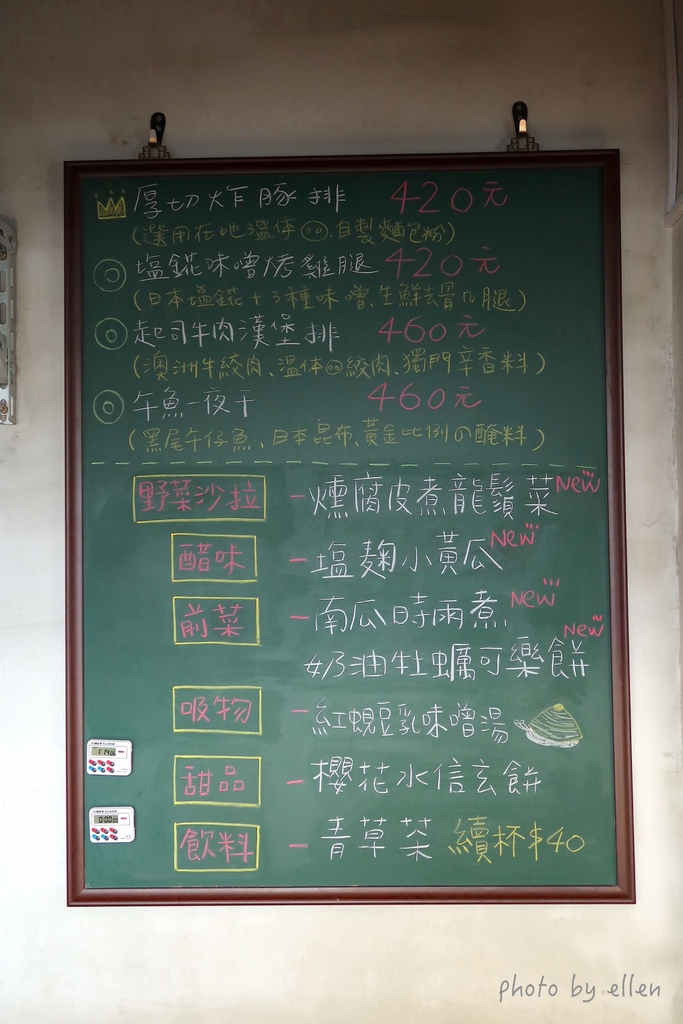 厚切炸豚排 420元
(選用在地溫体、自製麵包粉)
塩錵味噌烤雞腿 420元
(日本塩錵+3種味噌、生鮮去骨ㄇ腿)
起司牛肉漢堡排 460元
(澳洲牛絞肉、溫体絞肉、獨門辛香料)
午魚一夜干 460元
(黑尾午仔魚、日本昆布、黃金比例の醃料)
野菜沙拉 -燻腐皮煮龍鬚菜 New
醋味 -塩麴小黃瓜 New
前菜 -南瓜時雨煮 New
奶油牡蠣可樂餅 New
吸物 -紅蜆豆乳味噌湯
甜品 -櫻花水信玄餅
飲料 -青草茶 續杯$40
photo by ellen